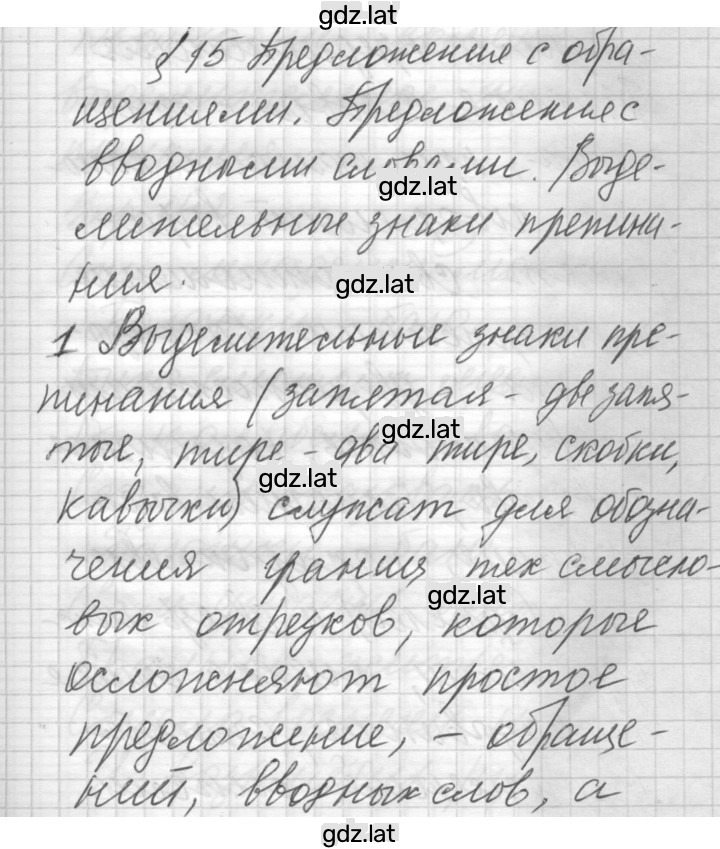 gdz.lat
§ 15 Предложение с обра-
щениями. Предложения с
вводными словами. Выде-
gdz.lat
лительные знаки препина-
ния.
gdz.lat
1 Выделительные знаки пре-
пинания (запятая - две запя-
gdz.lat
тые, тире - два тире, скобки,
gdz.lat
кавычки) служат для обозна-
чения границ тех смысло-
gdz.lat
вых отрезков, которые
осложняют простое
предложение, - обраще-
ний, вводных слов, а
gdz.lat